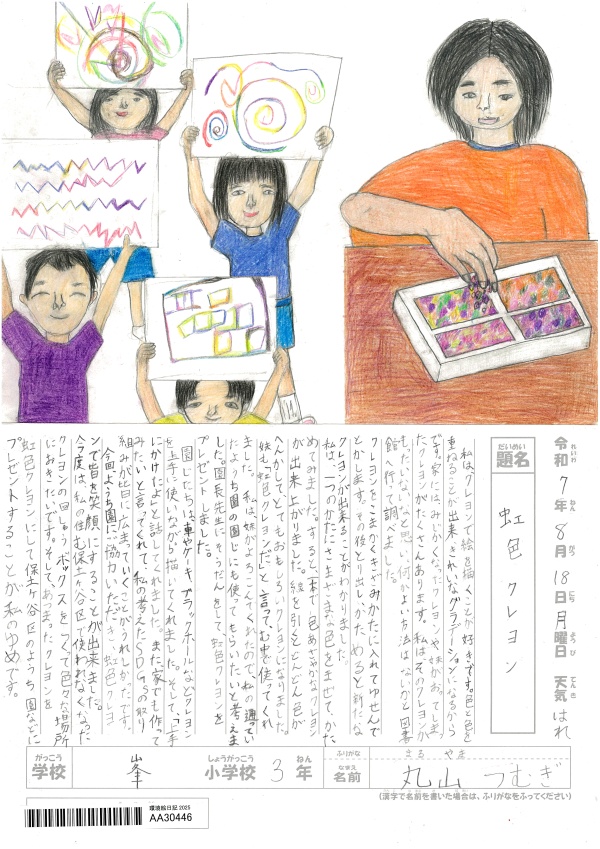 令和 れいわ 7年 ねん 8月 がつ 18日 にち 月曜日 ようび 天気 てんき はれ
題名 だいめい 虹色クレヨン
私はクレヨンで絵を描くことが好きです。色と色を
重ねることが出来、きれいなグラデーションになるから
です。家にはみじかくなったクレヨンや妹がおってしまっ
たクレヨンがたくさんあります。私はそのクレヨンが
もったいないなと思い、何かよい方法はないかと図書
館へ行って調べました。
クレヨンをこまかくきざみかたに入れてゆせんで
とかします。その後とり出しかためると新たな
クレヨンが出来ることがわかりました。
私は、一つのかたにさまざまな色をまぜてかた
めてみました。すると一本で色あざやかなクレヨン
が出来上がりました。線を引くとどんどん色が
へんかしてとてもおもしろいクレヨンになりました。
妹も「虹色クレヨンだ」と言って、む中で使ってくれ
ました。私は妹がよろこんでくれたので、私の通ってい
たようち園の園じにも使ってもらいたいと考えま
した。園長先生にそうだんをして虹色クレヨンを
プレゼントしました。
園じたちは、車やケーキ、ブラッチールなど
を上手に使いながら描いてくれました。そして、「上手
にかけたよ」と話してくれました。また家でも作って
みたいと言ってくれて、私の考えたSDGsの取り
組みが皆に広まっていくことがうれしかったです。
今回ようち園に協力いただき、虹色クレヨ
ンで皆を笑顔にすることが出来ました。
今度は、私の住む保土ヶ谷区で使われなくなった
クレヨンの回しゅうボックスをつくって色々な場所
におきたいです。そして、あつまったクレヨンを
虹色クレヨンにして保土ヶ谷区のようち園などに
プレゼントすることが私のゆめです。
学校 がっこう 峯 小学校 しょうがっこう 3年 ねん
ふりがな まる やま
名前 なまえ 丸山 つむぎ
(漢字で名前を書いた場合は、ふりがなをふってください)
環境絵日記 2025
AA30446